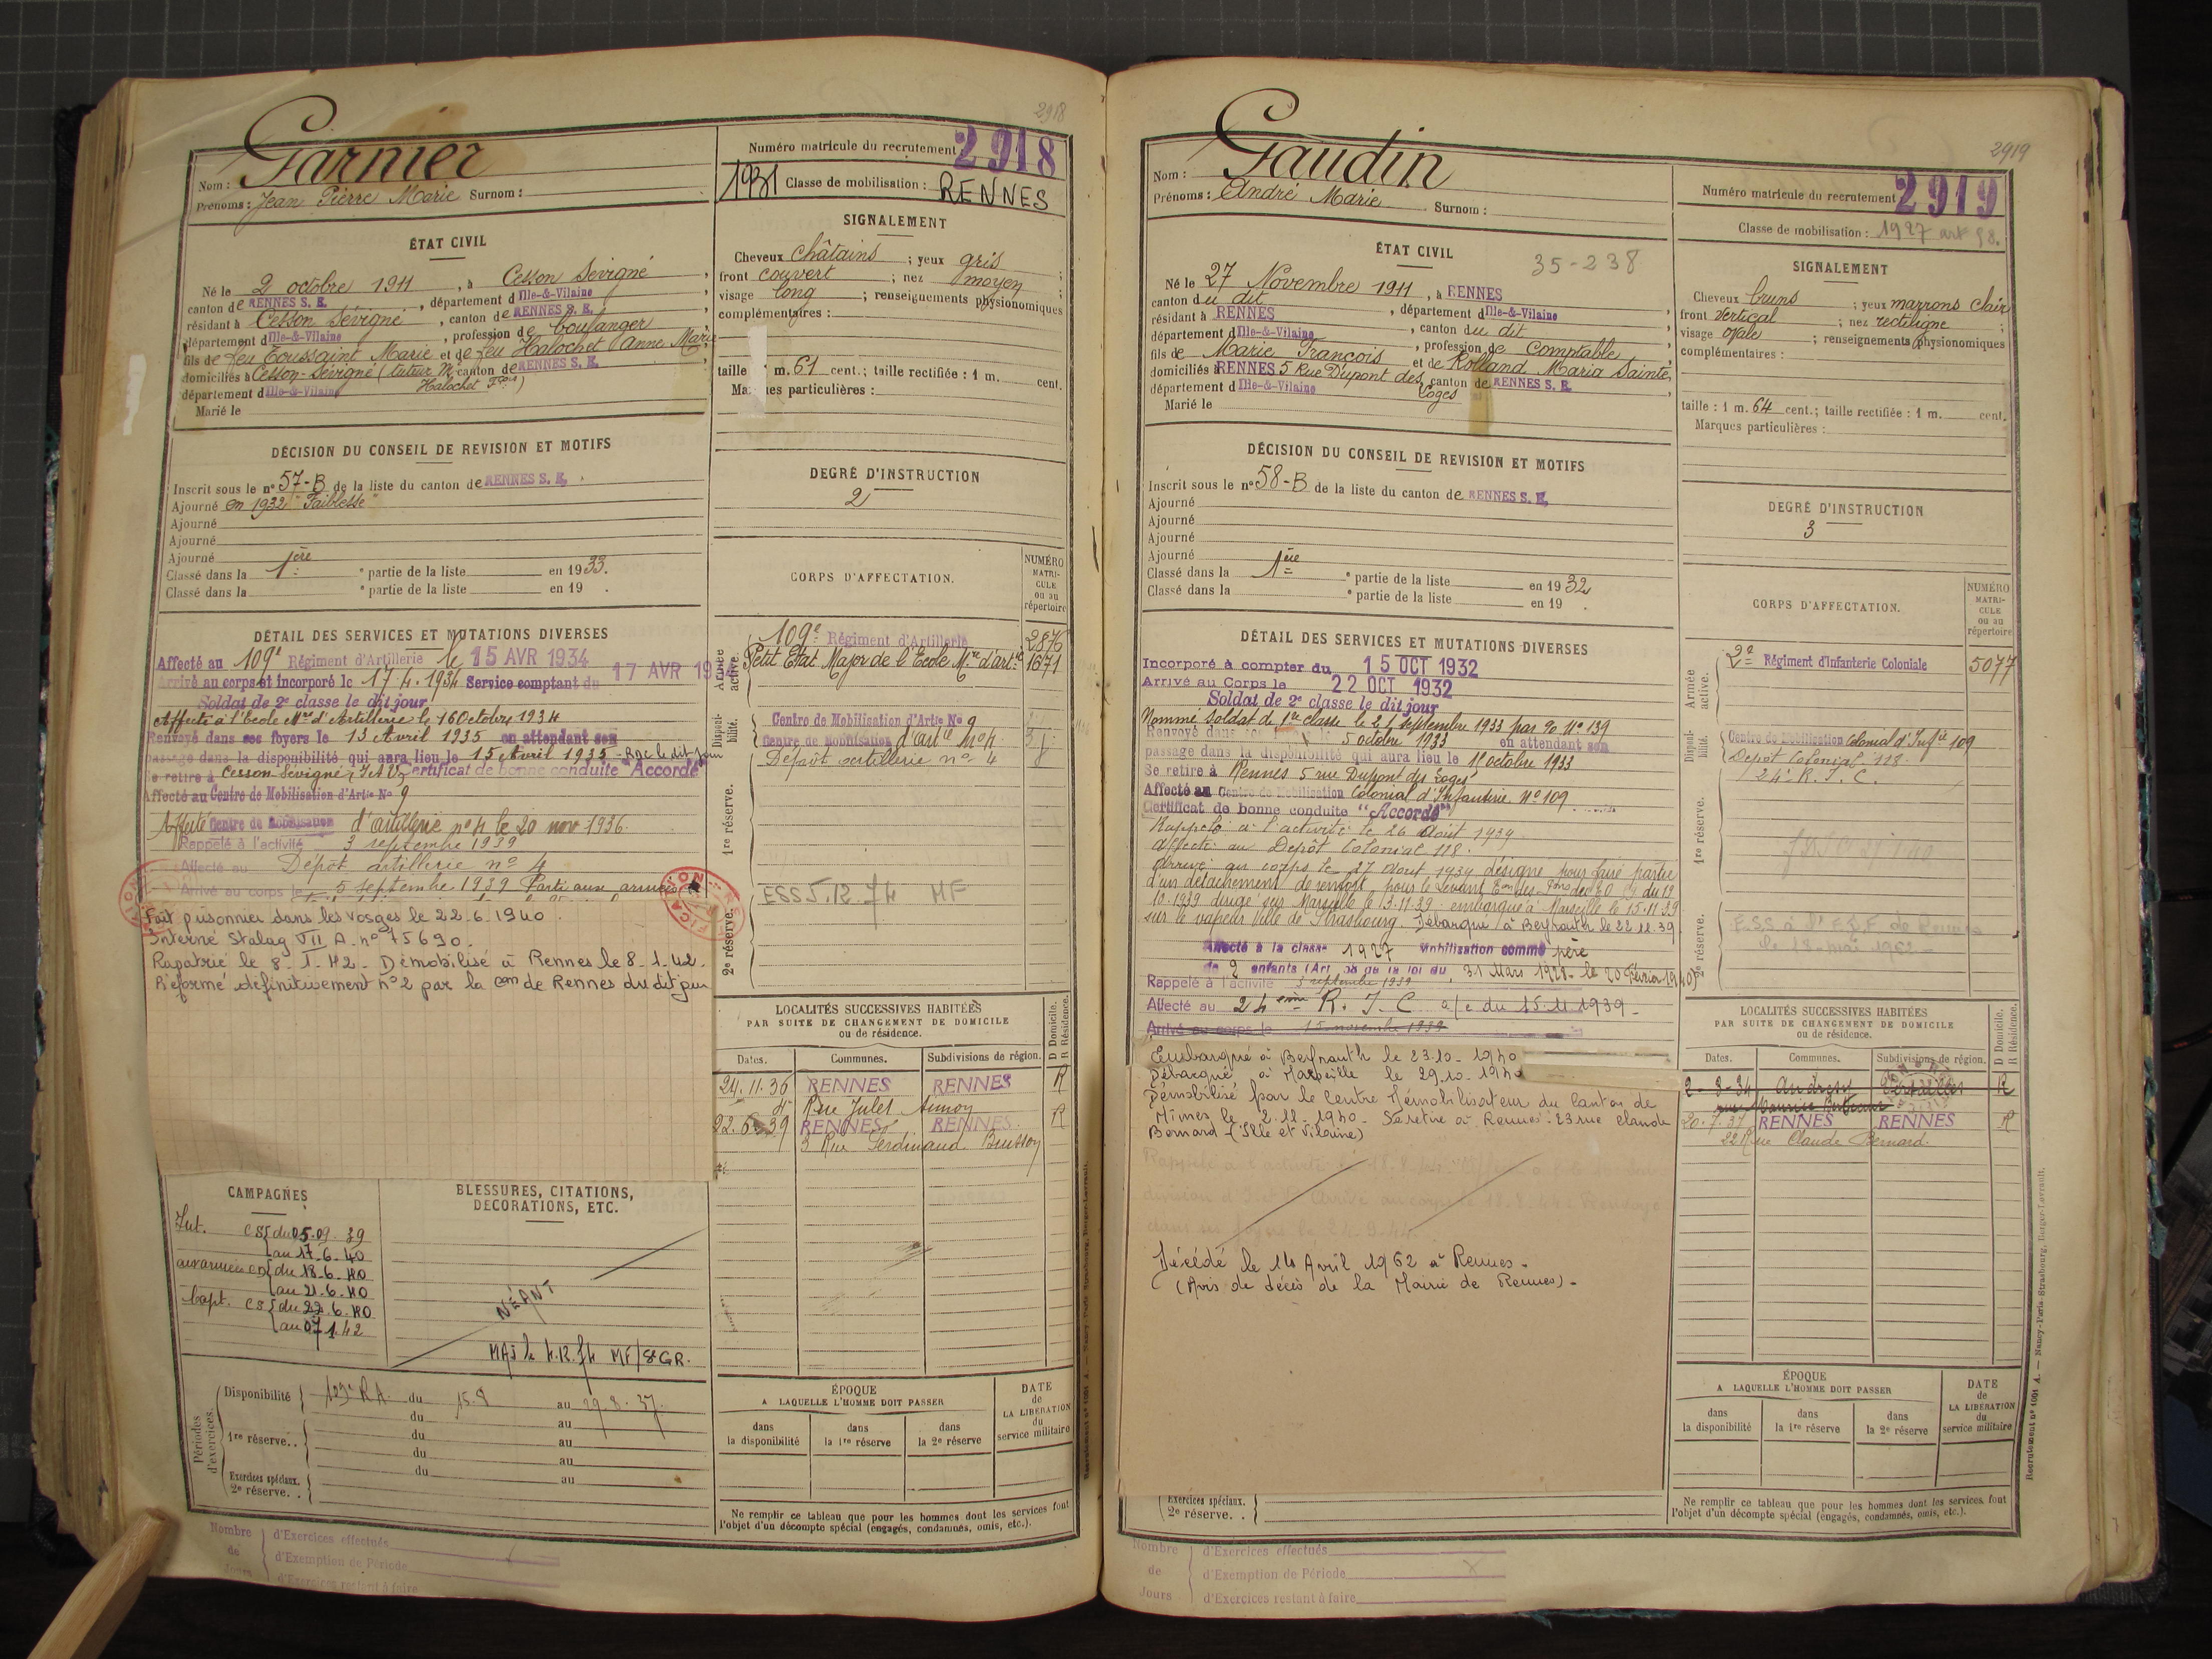 2918
Garnier
Nom :
Prénoms : Jean Pierre Marie Surnom :
Numéro matricule du recrutement 2918
1931 Classe de mobilisation : RENNES
ÉTAT CIVIL
Né le 2 octobre 1911, à Cesson Sévigné,
canton de RENNES S. E., département d Ille-&-Vilaine
résidant à Cesson Sévigné, canton de RENNES S. E.
département d Ille-&-Vilaine, profession de boulanger
fils de feu Toussaint Marie et de feu Halochet Anne Marie
domiciliés à Cesson-Sévigné (tuteur M. canton de RENNES S. E.
Halochet Fçois)
département d Ille-&-Vilaine
Marié le
SIGNALEMENT
Cheveux châtains ; yeux gris ;
front couvert ; nez moyen ;
visage long ; renseignements physionomiques
complémentaires :
taille 1 m. 61 cent.; taille rectifiée : 1 m. cent.
Marques particulières :
DÉCISION DU CONSEIL DE REVISION ET MOTIFS
Inscrit sous le n° 57-B de la liste du canton de RENNES S. E.
Ajourné en 1932 "Faiblesse"
Ajourné
Ajourné
Ajourné
Classé dans la 1ère partie de la liste en 1933.
Classé dans la e partie de la liste en 19 .
DEGRÉ D'INSTRUCTION
2
DÉTAIL DES SERVICES ET MUTATIONS DIVERSES
Affecté au 109e Régiment d'Artillerie le 15 AVR 1934
Arrivé au corps et incorporé le 17.4.1934 Service comptant du 17 AVR
Soldat de 2e classe le dit jour
Affecté à l'Ecole Mre d'Artillerie le 16 Octobre 1934
Renvoyé dans ses foyers le 13 Avril 1935 en attendant son
passage dans la disponibilité qui aura lieu le 15 Avril 1935
Se retire à Cesson Sévigné I et V Certificat de bonne conduite "Accordé"
Affecté au Centre de Mobilisation d'Artie No 9
Affecté Centre de Mobilisation d'artillerie no 4 le 20 nov 1936.
Rappelé à l'activité 3 septembre 1939
Affecté au Dépôt artillerie no 4
Arrivé au corps le 5 septembre 1939 Parti aux armées
Fait prisonnier dans les Vosges le 22.6.1940.
Interné Stalag VII A. no 75690.
Rapatrié le 8.1.42 - Démobilisé à Rennes le 8.1.42.
Réformé définitivement no 2 par la Con de Rennes du dit jour
CORPS D'AFFECTATION.
NUMÉRO MATRICULE ou au répertoire
Armée active.
109e Régiment d'Artillerie 2876
Petit Etat Major de l'Ecole Mre d'artie 1671
Disponibilité.
Centre de Mobilisation d'Artie No 9
Centre de Mobilisation d'artie no 4
Dépôt artillerie no 4
1re réserve.
ESS 5.12.74 MF
2e réserve.
LOCALITÉS SUCCESSIVES HABITÉES
PAR SUITE DE CHANGEMENT DE DOMICILE
ou de résidence.
D Domicile. R Résidence.
Dates. Communes. Subdivisions de région.
24.11.36 RENNES RENNES R
Rue Jules
22.6.39 RENNES RENNES R
3 Rue Ferdinand Buisson
CAMPAGNES
Int. CS du 05.09.39
au 17.6.40
aux armées CD du 18.6.40
au 21.6.40
Capt. CS du 22.6.40
au 07.1.42
BLESSURES, CITATIONS,
DÉCORATIONS, ETC.
NÉANT
MAJ le 4.12.74 MF/St GR.
Périodes d'exercices.
Disponibilité du 15.8 au 29.8.37.
du au
1re réserve.. du au
du au
Exercices spéciaux. du au
2e réserve. .
ÉPOQUE
A LAQUELLE L'HOMME DOIT PASSER
dans la disponibilité
dans la 1re réserve
dans la 2e réserve
DATE de LA LIBÉRATION du service militaire
Ne remplir ce tableau que pour les hommes dont les services font
l'objet d'un décompte spécial (engagés, condamnés, omis, etc.).
Nombre de Jours
d'Exercices effectués
d'Exemption de Période
d'Exercices restant à faire
2919
Gaudin
Nom :
Prénoms : André Marie Surnom :
Numéro matricule du recrutement 2919
Classe de mobilisation : 1927 art 58.
ÉTAT CIVIL
35-238
Né le 27 Novembre 1911, à RENNES
canton du dit, département d Ille-&-Vilaine
résidant à RENNES, canton du dit
département d Ille-&-Vilaine, profession de Comptable
fils de Marie François et de Rolland Maria Sainte
domiciliés à RENNES 5 Rue Dupont des Loges canton de RENNES S. E.
département d Ille-&-Vilaine
Marié le
SIGNALEMENT
Cheveux bruns ; yeux marrons clair
front vertical ; nez rectiligne ;
visage ovale ; renseignements physionomiques
complémentaires :
taille : 1 m. 64 cent.; taille rectifiée : 1 m. cent.
Marques particulières :
DÉCISION DU CONSEIL DE REVISION ET MOTIFS
Inscrit sous le n° 58-B de la liste du canton de RENNES S. E.
Ajourné
Ajourné
Ajourné
Ajourné
Classé dans la 1ère partie de la liste en 1932
Classé dans la e partie de la liste en 19 .
DEGRÉ D'INSTRUCTION
3
DÉTAIL DES SERVICES ET MUTATIONS DIVERSES
Incorporé à compter du 15 OCT 1932
Arrivé au Corps le 22 OCT 1932
Soldat de 2e classe le dit jour
Nommé Soldat de 1re classe le 21 septembre 1933 par No 139
Renvoyé dans 5 octobre 1933 en attendant son
passage dans la disponibilité qui aura lieu le 1er octobre 1933
Se retire à Rennes 5 rue Dupont des Loges
Affecté au Centre de Mobilisation Colonial d'Infanterie No 109
Certificat de bonne conduite "Accordé"
Rappelé à l'activité le 26 Août 1939
Affecté au Dépôt Colonial 118.
Arrivé au corps le 27 Août 1939 désigné pour faire partie
d'un détachement de renfort pour le Levant du 19
10.1939 dirigé sur Marseille le 13.11.39 embarqué à Marseille le 15.11.39
sur le vapeur Ville de Strasbourg. Débarqué à Beyrouth le 22.11.39
Affecté à la classe 1927 Mobilisation comme père
de 2 enfants (Art 58 de la loi du 31 Mars 1928 - le 20 Février 1940)
Rappelé à l'activité 3 septembre 1939
Affecté au 24ème R.I.C a/c du 15.11.1939
Arrivé au corps le 15 novembre 1939
Embarqué à Beyrouth le 23.10.1940
Débarqué à Marseille le 29.10.1940
Démobilisé par le Centre Démobilisateur du Canton de
Nîmes le 2.11.1940. Se retire à Rennes. 23 rue Claude
Bernard (Ille et Vilaine)
Décédé le 14 Avril 1962 à Rennes -
(Avis de décès de la Mairie de Rennes) -
CORPS D'AFFECTATION.
NUMÉRO MATRICULE ou au répertoire
Armée active.
2e Régiment d'Infanterie Coloniale 5077
Disponibilité.
Centre de Mobilisation Colonial d'Infie 109
Dépôt Colonial 118.
24e R.I.C.
1re réserve.
2e réserve.
le 18 mai 1962
LOCALITÉS SUCCESSIVES HABITÉES
PAR SUITE DE CHANGEMENT DE DOMICILE
ou de résidence.
D Domicile. R Résidence.
Dates. Communes. Subdivisions de région.
2-8-34 Andrésy Versailles R
rue Maurice Berteaux
20.7.37 RENNES RENNES R
22 Rue Claude Bernard.
ÉPOQUE
A LAQUELLE L'HOMME DOIT PASSER
dans la disponibilité
dans la 1re réserve
dans la 2e réserve
DATE de LA LIBÉRATION du service militaire
Exercices spéciaux.
2e réserve. .
Ne remplir ce tableau que pour les hommes dont les services font
l'objet d'un décompte spécial (engagés, condamnés, omis, etc.).
Recrutement n° 1001 A. — Nancy-Paris-Strasbourg, Berger-Levrault.
Nombre de Jours
d'Exercices effectués
d'Exemption de Période
d'Exercices restant à faire